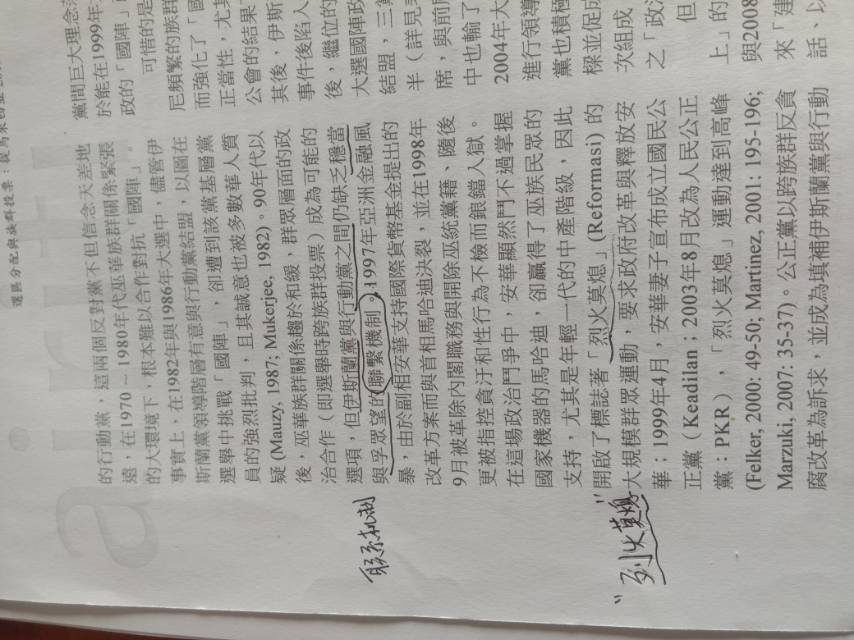 選區分配與族群投票：從馬來西亞
的行動黨，這兩個反對黨不但信念天差地
遠，在1970～1980年代巫華族群關係緊張
的大環境下，根本難以合作對抗「國陣」。
事實上，在1982年與1986年大選中，儘管伊
斯蘭黨領導階層有意與行動黨結盟，以圖在
選舉中挑戰「國陣」，卻遭到該黨基層黨
員的強烈批判，且其誠意也被多數華人質
疑 (Mauzy, 1987; Mukerjee, 1982)。90年代以
後，巫華族群關係趨於和緩，群眾層面的政
治合作（即選舉時跨族群投票）成為可能的
選項，但伊斯蘭黨與行動黨之間仍缺乏穩當
與孚眾望的聯繫機制。1997年亞洲金融風
暴，由於副相安華支持國際貨幣基金提出的
改革方案而與首相馬哈迪決裂，並在1998年
9月被革除內閣職務與開除巫統黨籍、隨後
更被指控貪汙和性行為不檢而鋃鐺入獄。
在這場政治鬥爭中，安華顯然鬥不過掌握
國家機器的馬哈迪，卻贏得了巫族民眾的
支持，尤其是年輕一代的中產階級，因此
開啟了標誌著「烈火莫熄」(Reformasi) 的
大規模群眾運動，要求政府改革與釋放安
華：1999年4月，安華妻子宣布成立國民公
正黨（Keadilan；2003年8月改為人民公正
黨：PKR），「烈火莫熄」運動達到高峰
(Felker, 2000: 49-50; Martinez, 2001: 195-196;
Marzuki, 2007: 35-37)。公正黨以跨族群反貪
腐改革為訴求，並成為填補伊斯蘭黨與行動
联系机制
"烈火莫熄"
黨間巨大理念落
於能在1999年
政的「國陣」
可惜的是
尼頻繁的族群
而強化了「國
正當性，尤其
公會的結果
其後，伊斯
事件後陷入
後，繼位的
大選國陣政
結盟，三黨
半（詳見
席，與前
中也輸了
2004年大
進行領導
黨也積極
樑並促成
次組成
之「政
但
上」的
與2008
來「建
話、以